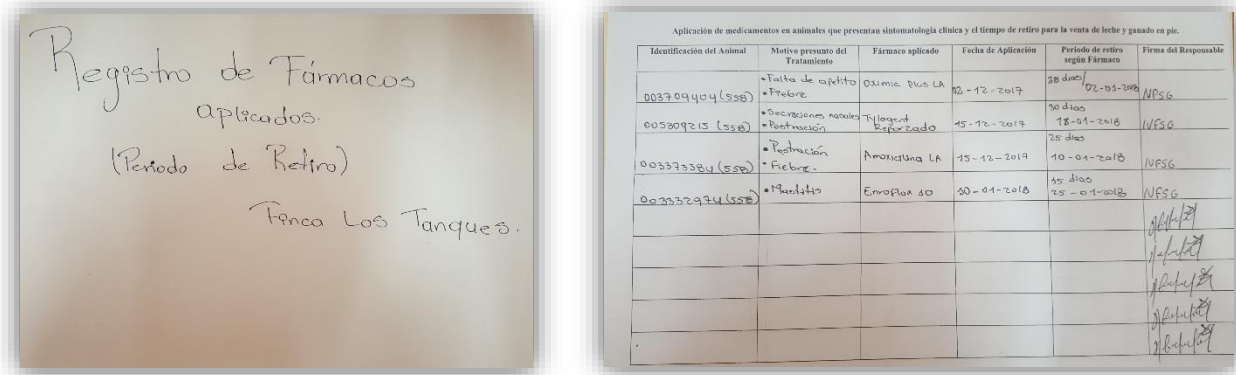 Registro de Fármacos
aplicados.
(Periodo de Retiro)
Finca Los Tanques.
Aplicación de medicamentos en animales que presentan sintomatología clínica y el tiempo de retiro para la venta de leche y ganado en pie.
Identificación del Animal Motivo presunto del Tratamiento Fármaco aplicado Fecha de Aplicación Periodo de retiro según Fármaco Firma del Responsable
003709404 (558) • Falta de apetito • Fiebre Oximic Plus LA 02-12-2017 38 dias/ 02-01-2018 NFSG
005809215 (558) • Secreciones nasales • Postración Tylogent Reforzado 15-12-2017 30 dias 18-01-2018 NFSG
003373384 (558) • Postración • Fiebre. Amoxicilina LA 15-12-2017 25 dias 10-01-2018 NFSG
003332974 (558) • Mastitis Enroflox 10 -01-2018 dias 25-01-2018 NFSG